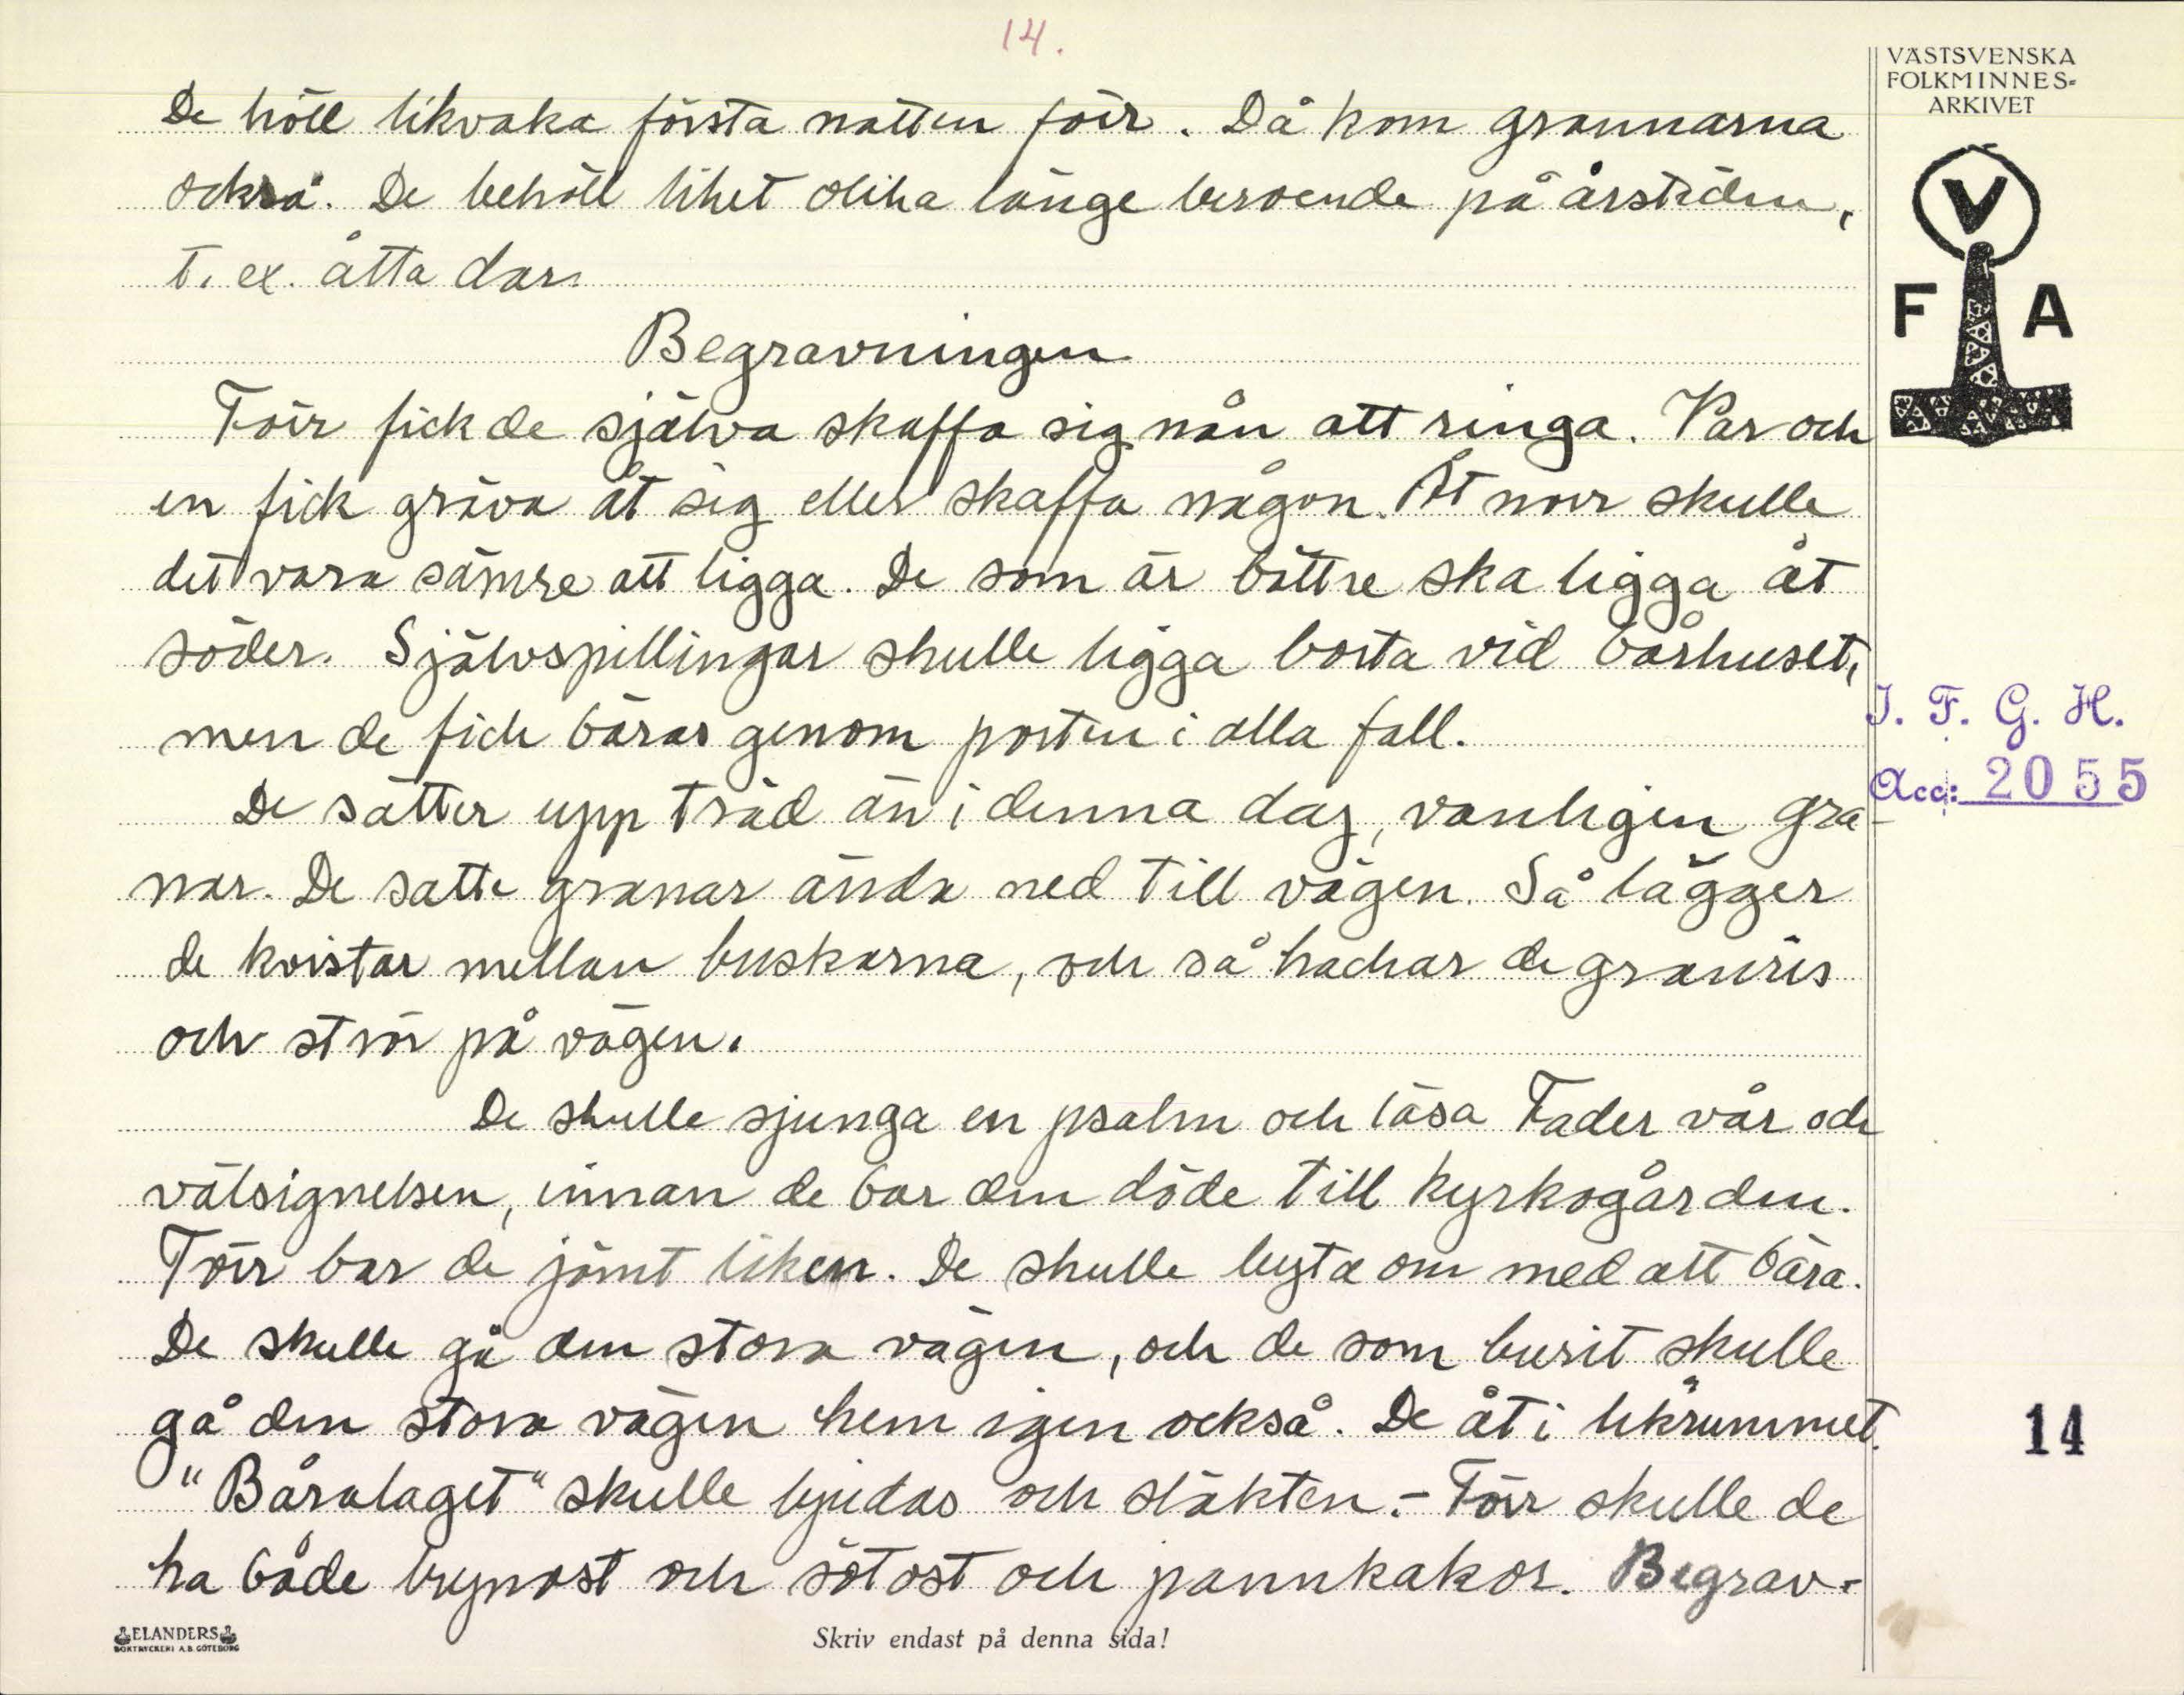 14.
VÄSTSVENSKA
FOLKMINNES-
ARKIVET
V
F A
De höll likvaka första natten förr. Då kom grannarna
också. De behöll liket olika länge beroende på årstiden,
t. ex. åtta dar.
Begravningen
Förr fick de själva skaffa sig nån att ringa. Var och
en fick gräva åt sig eller skaffa någon. Åt norr skulle
det vara sämre att ligga. De som är bättre ska ligga åt
söder. Självspillingar skulle ligga borta vid bårhuset,
men de fick bäras genom porten i alla fall.
De sätter upp träd än i denna dag, vanligen gra-
nar. De satte granar ända ned till vägen. Så lägger
de kvistar mellan buskarna, och så hackar de granris
och strör på vägen.
De skulle sjunga en psalm och läsa Fader vår och
välsignelsen, innan de bar den döde till kyrkogården.
Förr bar de jämt liken. De skulle byta om med att bära.
De skulle gå den stora vägen, och de som burit skulle
gå den stora vägen hem igen också. De åt i likrummet.
"Båralaget" skulle bjudas och släkten. - Förr skulle de
ha både brynost och sötost och pannkakor. Begrav-
I. F. G. H.
Acc: 2055
14
ELANDERS
BOKTRYCKERI A.B. GÖTEBORG
Skriv endast på denna sida!